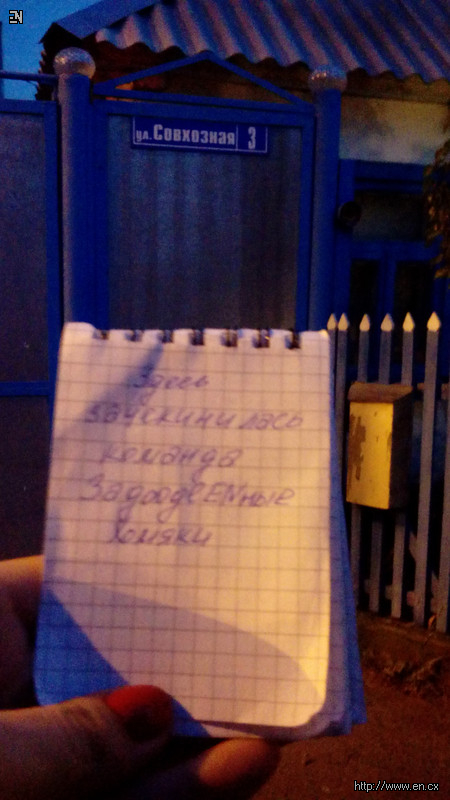 EN
ул. Совхозная 3
Здесь
заускинилась
команда
ЗадоодвЕNные
хомяки
http://www.en.cx